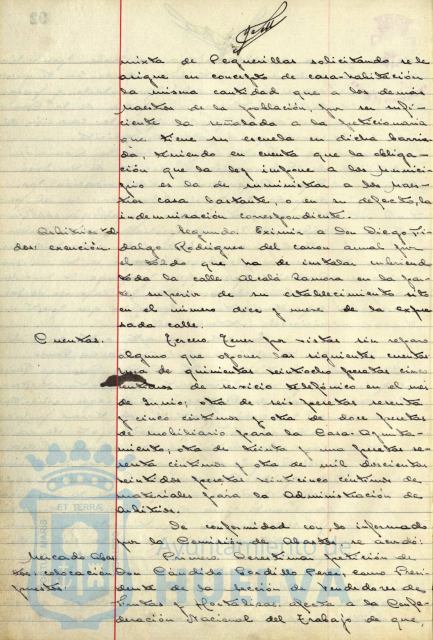 mixta de Pequerillas solicitando se le
asigne en concepto de casa-habitación
la misma cantidad que a los demás
maestros de la población, por ser sufi-
ciente la señalada a la peticionaria
que tiene su escuela en dicha barria-
da, teniendo en cuenta que la obliga-
ción que la ley impone a los Munici-
pios es la de suministrar a los Maes-
tros casa bastante, o en su defecto, la
indemnización correspondiente.
Segundo. Eximir a Don Diego Fi-
dalgo Rodríguez del canon anual por
exención.
el toldo que ha de instalar cubriendo
toda la calle Alcalá Zamora en la par-
te superior de su establecimiento sito
en el número diez y nueve de la expre-
sada calle.
Cuentas.
Tercero. Tener por vistas sin reparo
alguno que oponer las siguientes cuentas
una de quinientas veintiocho pesetas cinco
céntimos de servicio telefónico en el mes
de Junio; otra de seis pesetas sesenta
y cinco céntimos y otra de doce pesetas
de mobiliario para la Casa-Ayunta-
miento; otra de treinta y una pesetas se-
senta céntimos y otra de mil doscientas
veintidós pesetas veinticinco céntimos de
materiales para la Administración de
Arbitrios.
De conformidad con lo informado
por la Comisión de Abastos, se acordó:
Mercado Abas-
tos, colocación
puestos.
Primero. Desestimar petición de
Don Cándido Gordillo Pérez, como Presi-
dente de la sección de vendedores de
Frutas y Hortalizas, afecta a la Confe-
deración Nacional del Trabajo de que,
ET TERRAE
Ayuntamiento de
HUELVA